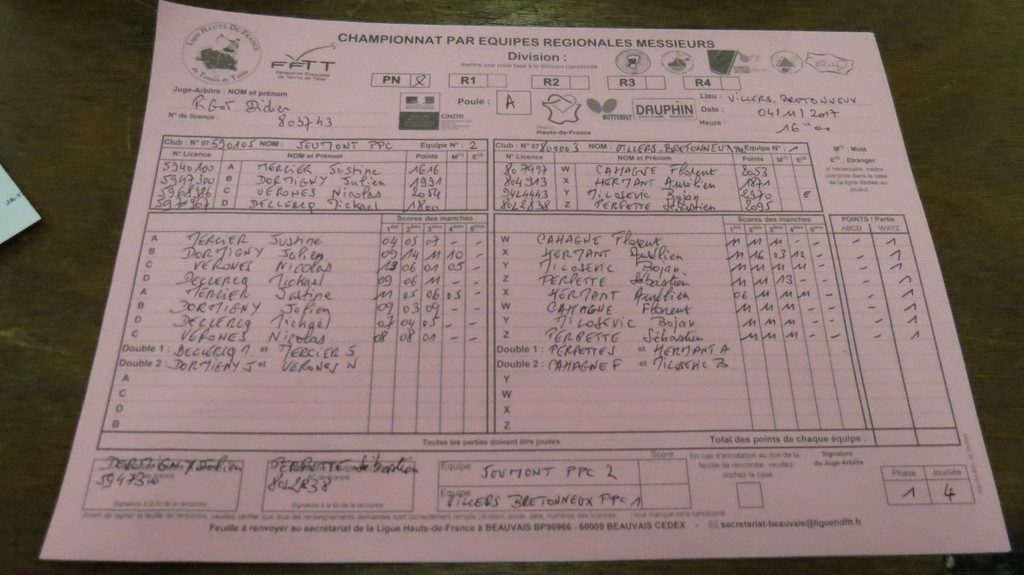 LIGUE HAUTS-DE-FRANCE
de Tennis de Table
FFTT
Fédération Française de Tennis de Table
CHAMPIONNAT PAR EQUIPES REGIONALES MESSIEURS
Division :
mettre une croix face à la division concernée
PN X R1 R2 R3 R4
Juge-Arbitre : NOM et prénom
PIGOT Didier
N° de licence : 803743
CNDS
Poule : A
Hauts-de-France
BUTTERFLY
DAUPHIN
Lieu : VILLERS-BRETONNEUX
Date : 04/11/2017
Heure : 16
Club : N° 07590105 NOM : JEUMONT PPC Equipe N° : 2
N° Licence NOM et Prénom Points M(1) E(2)
5940100 A MERCIER Justine 1616
5947300 B DORTIGNY Julien 1991
5968386 C VERONES Nicolas
D DECLERCQ Mickael
Club : N° 07803003 NOM : VILLERS-BRETONNEUX Equipe N° : 1
N° Licence NOM et Prénom Points M E
807997 W CAMAGNE Florent 2053
804913 X HERMANT Aurélien 1871
9424443 Y MILOSEVIC Bojan E
Z PERPETTE Sébastien 2095
M(1) : Muté
E(2) : Etranger
si nécessaire, mettre une croix dans la case de la ligne dédiée au joueur.
Scores des manches
1ère 2ème 3ème 4ème 5ème
A MERCIER Justine 04 05 07 - -
B DORTIGNY Julien 09 14 11 10 -
C VERONES Nicolas 13 06 01 05 -
D DECLERCQ Mickael 09 06 11 - -
A MERCIER Justine 11 05 06 05 -
B DORTIGNY Julien 09 03 09 - -
D DECLERCQ Mickael 07 04 05 - -
C VERONES Nicolas 08 08 01 - -
Double 1 : DECLERCQ M et MERCIER J
Double 2 : DORTIGNY J et VERONES N
A
C
D
B
Scores des manches
1ère 2ème 3ème 4ème 5ème
POINTS / Partie
ABCD WXYZ
W CAMAGNE Florent 11 11 11 - - - 1
X HERMANT Aurélien 11 16 03 12 - - 1
Y MILOSEVIC Bojan 11 11 11 11 - - 1
Z PERPETTE Sébastien 11 11 13 - - - 1
X HERMANT Aurélien 06 11 11 11 - - 1
W CAMAGNE Florent 11 11 11 - - - 1
Y MILOSEVIC Bojan 11 11 11 - - - 1
Z PERPETTE Sébastien 11 11 11 - - - 1
Double 1 : PERPETTE S et HERMANT A
Double 2 : CAMAGNE F et MILOSEVIC B
Y
W
X
Z
Toutes les parties doivent être jouées
Total des points de chaque équipe :
DORTIGNY Julien
5947300
Signature à la fin de la rencontre
PERPETTE Sébastien
Signature à la fin de la rencontre
Score
Equipe JEUMONT PPC 2
Equipe VILLERS BRETONNEUX PPC 1
En cas d'annotation au dos de la feuille de rencontre, veuillez cocher la case
Signature du Juge-Arbitre
Phase Journée
1 4
Feuille à renvoyer au secrétariat de la Ligue Hauts-de-France à BEAUVAIS BP90966 - 60009 BEAUVAIS CEDEX - secretariat-beauvais@liguehdftt.fr